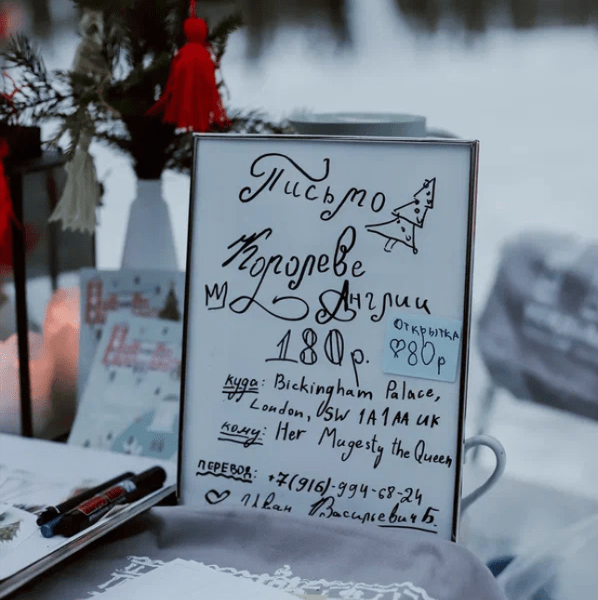 Письмо
Королеве
Англии
180р.
ОТКРЫТКА
80р
куда: Bickingham Palace,
London, SW 1A 1AA UK
кому: Her Mugesty the Queen
ПЕРЕВОД: +7(916)-994-68-24
Иван Васильевич Б.